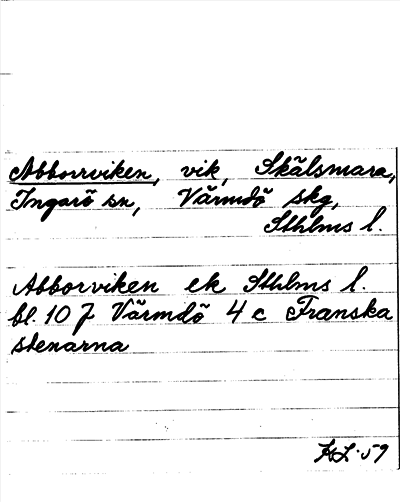 Abborrviken, vik, Skälsmara,
Ingarö sn, Värmdö skg,
Sthlms l.
Abborviken ek Sthlms l.
bl. 10 J Värmdö 4 c Franska
stenarna
KL 59